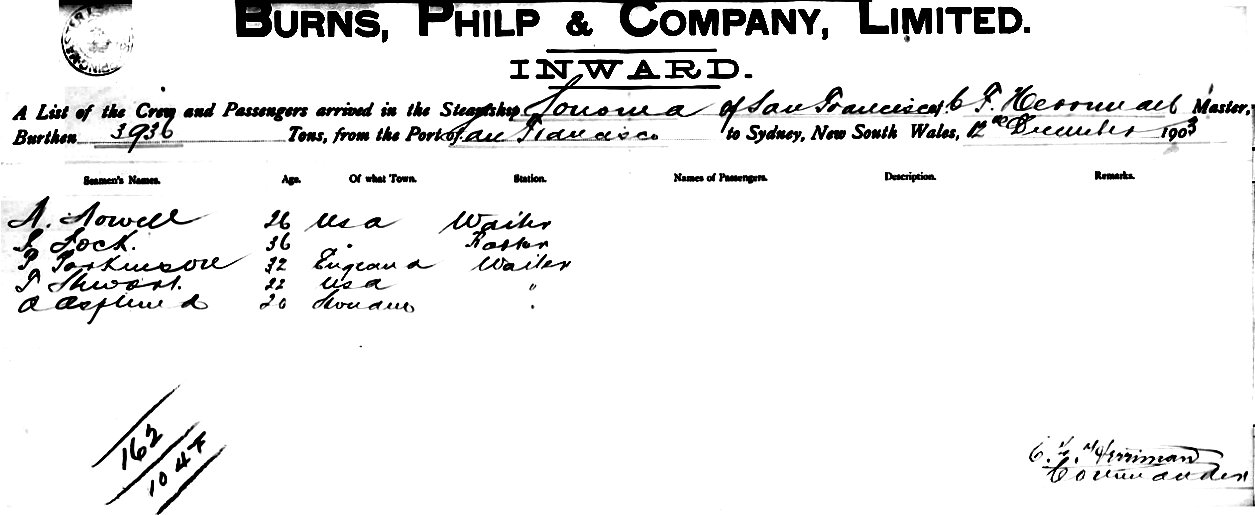 BURNS, PHILP & COMPANY, LIMITED.
INWARD.
A List of the Crew and Passengers arrived in the Steamship Sonoma of San Francisco, C F. Herriman Master,
Burthen 3936 Tons, from the Port of San Francisco to Sydney, New South Wales, 12th December 1903
Seamen's Names. Age. Of what Town. Station. Names of Passengers. Description. Remarks.
A. Nowell 26 USA Waiter
Lock. 36
P Parkinson 32 England Waiter
T Stewart. 22 USA "
20
162
1047
C. F. Herriman
Commander